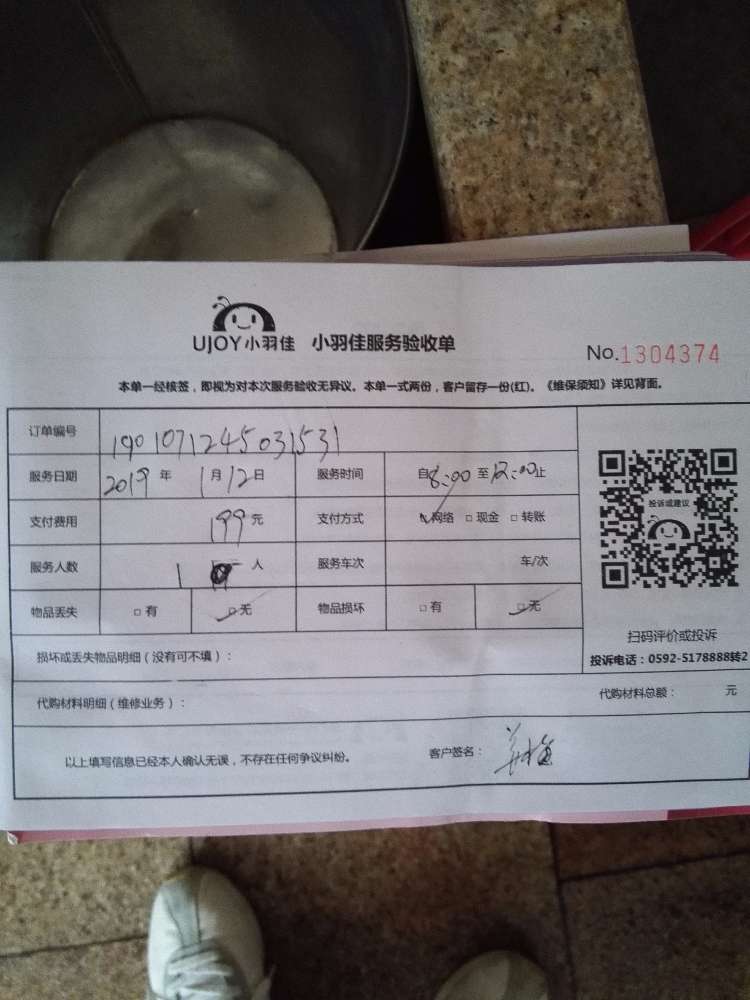 UJOY小羽佳 小羽佳服务验收单
No.1304374
本单一经核签，即视为对本次服务验收无异议。本单一式两份，客户留存一份(红)。《维保须知》详见背面。
订单编号 1901071245031531
服务日期 2019年1月12日 服务时间 自8:00至12:00止
支付费用 199元 支付方式 网络 □现金 □转账
服务人数 1人 服务车次 车/次
物品丢失 □有 □无 物品损坏 □有 □无
投诉或建议
扫码评价或投诉
投诉电话：0592-5178888转2
损坏或丢失物品明细（没有可不填）：
代购材料明细（维修业务）： 代购材料总额： 元
以上填写信息已经本人确认无误，不存在任何争议纠纷。 客户签名：